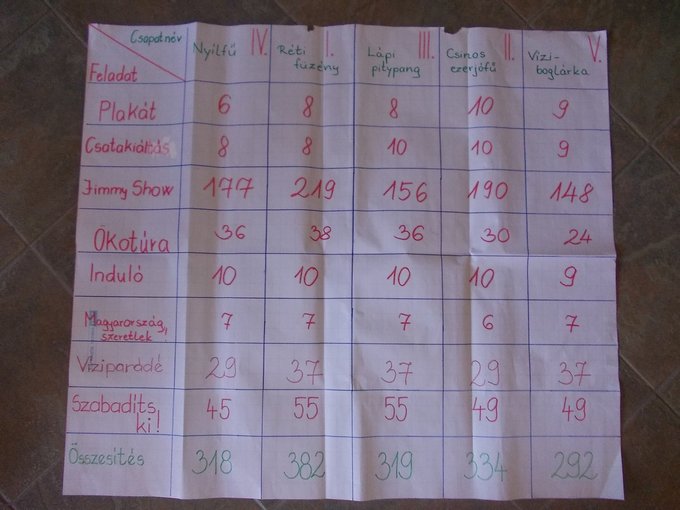 Csapatnév Nyílfű IV. Réti füzény I. Lápi pitypang III. Csinos ezerjófű II. Vízi-boglárka V.
Feladat
Plakát 6 8 8 10 9
Csatakiáltás 8 8 10 10 9
Jimmy Show 177 219 156 190 148
Ökotúra 36 38 36 30 24
Induló 10 10 10 10 9
Magyarország, szeretlek 7 7 7 6 7
Víziparádé 29 37 37 29 37
Szabadíts ki! 45 55 55 49 49
Összesítés 318 382 319 334 292